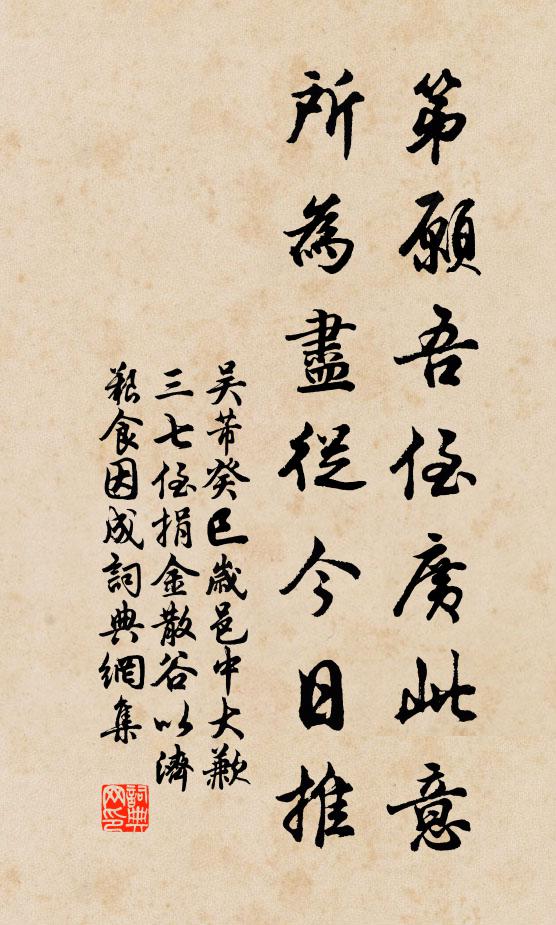 第願吾侄廣此意
所為盡從今日推
吳芾癸巳歲邑中大歉
三七侄捐金散谷以濟
艱食因成詞典網集
詞典网印